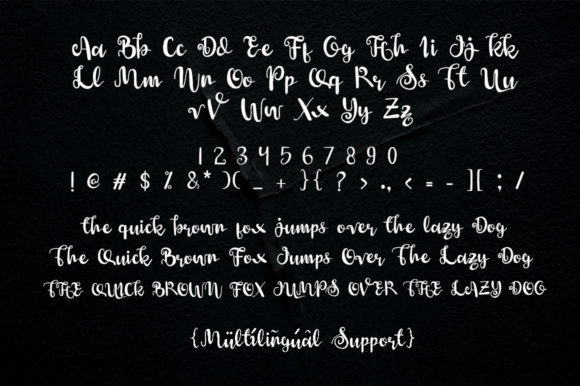 Aa Bb Cc Dd Ee Ff Gg Hh Ii Jj Kk
Ll Mm Nn Oo Pp Qq Rr Ss Tt Uu
vV Ww Xx Yy Zz
1 2 3 4 5 6 7 8 9 0
! @ # $ % &* )( _ + }{ ? > ., < = - ][ ; /
the quick brown fox jumps over the lazy Dog
The Quick Brown Fox Jumps Over The Lazy Dog
THE QUICK BROWN FOX JUMPS OVER THE LAZY DOG
{Mültílíñgúâl Support}